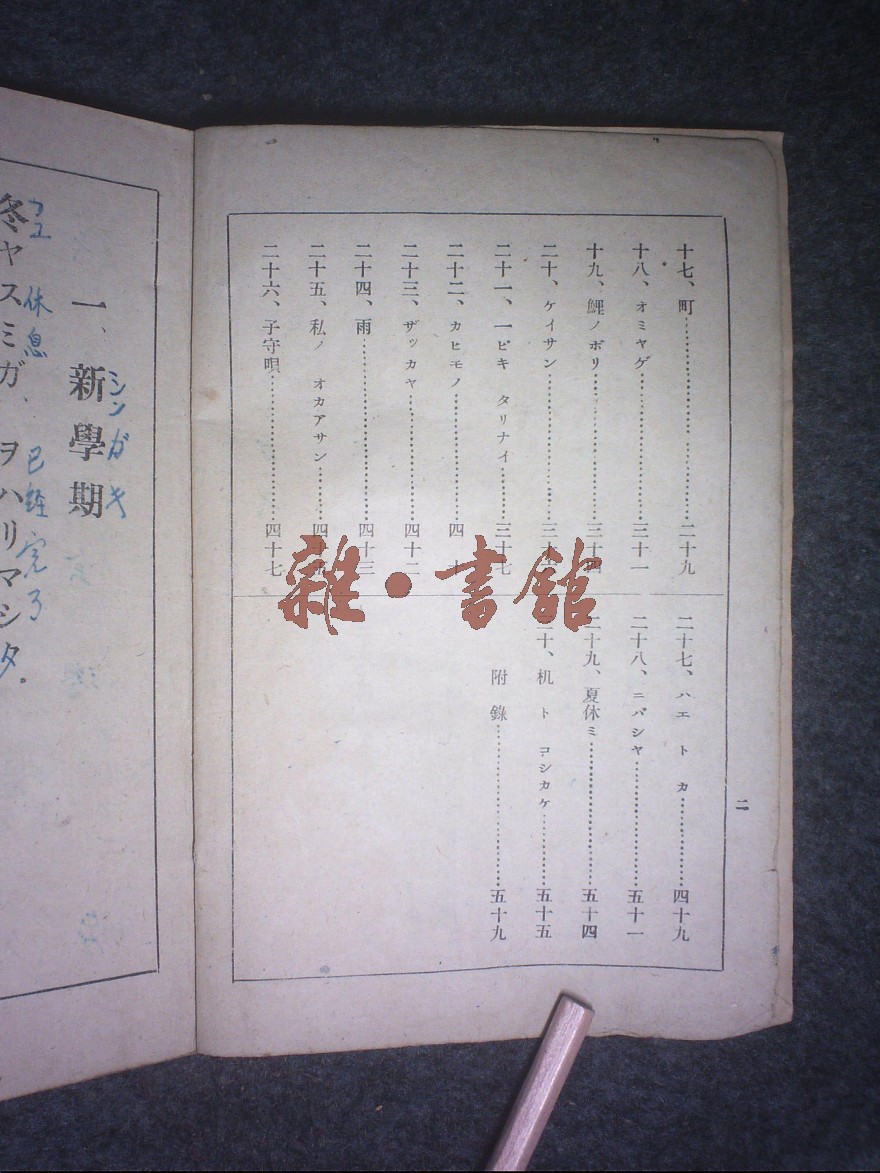 十七、町 二十九
十八、オミヤゲ 三十一
十九、鯉ノボリ
二十、ケイサン
二十一、一ピキ タリナイ 三十七
二十二、カヒモノ 四十
二十三、ザッカヤ 四十二
二十四、雨 四十三
二十五、私ノ オカアサン
二十六、子守唄 四十七
二十七、ハエ ト カ 四十九
二十八、ニバシヤ 五十一
二十九、夏休ミ 五十四
十、机 ト コシカケ 五十五
附錄 五十九
二
一、新學期
シンガキ
冬ヤスミガ ヲハリマシタ。
フユ 休息 已經完了
雜·書館